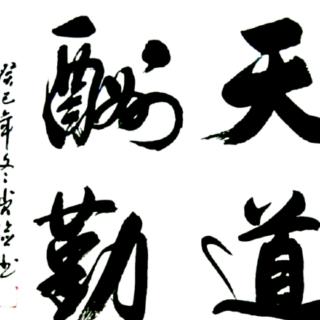 天道
酬勤
癸巳年冬
书